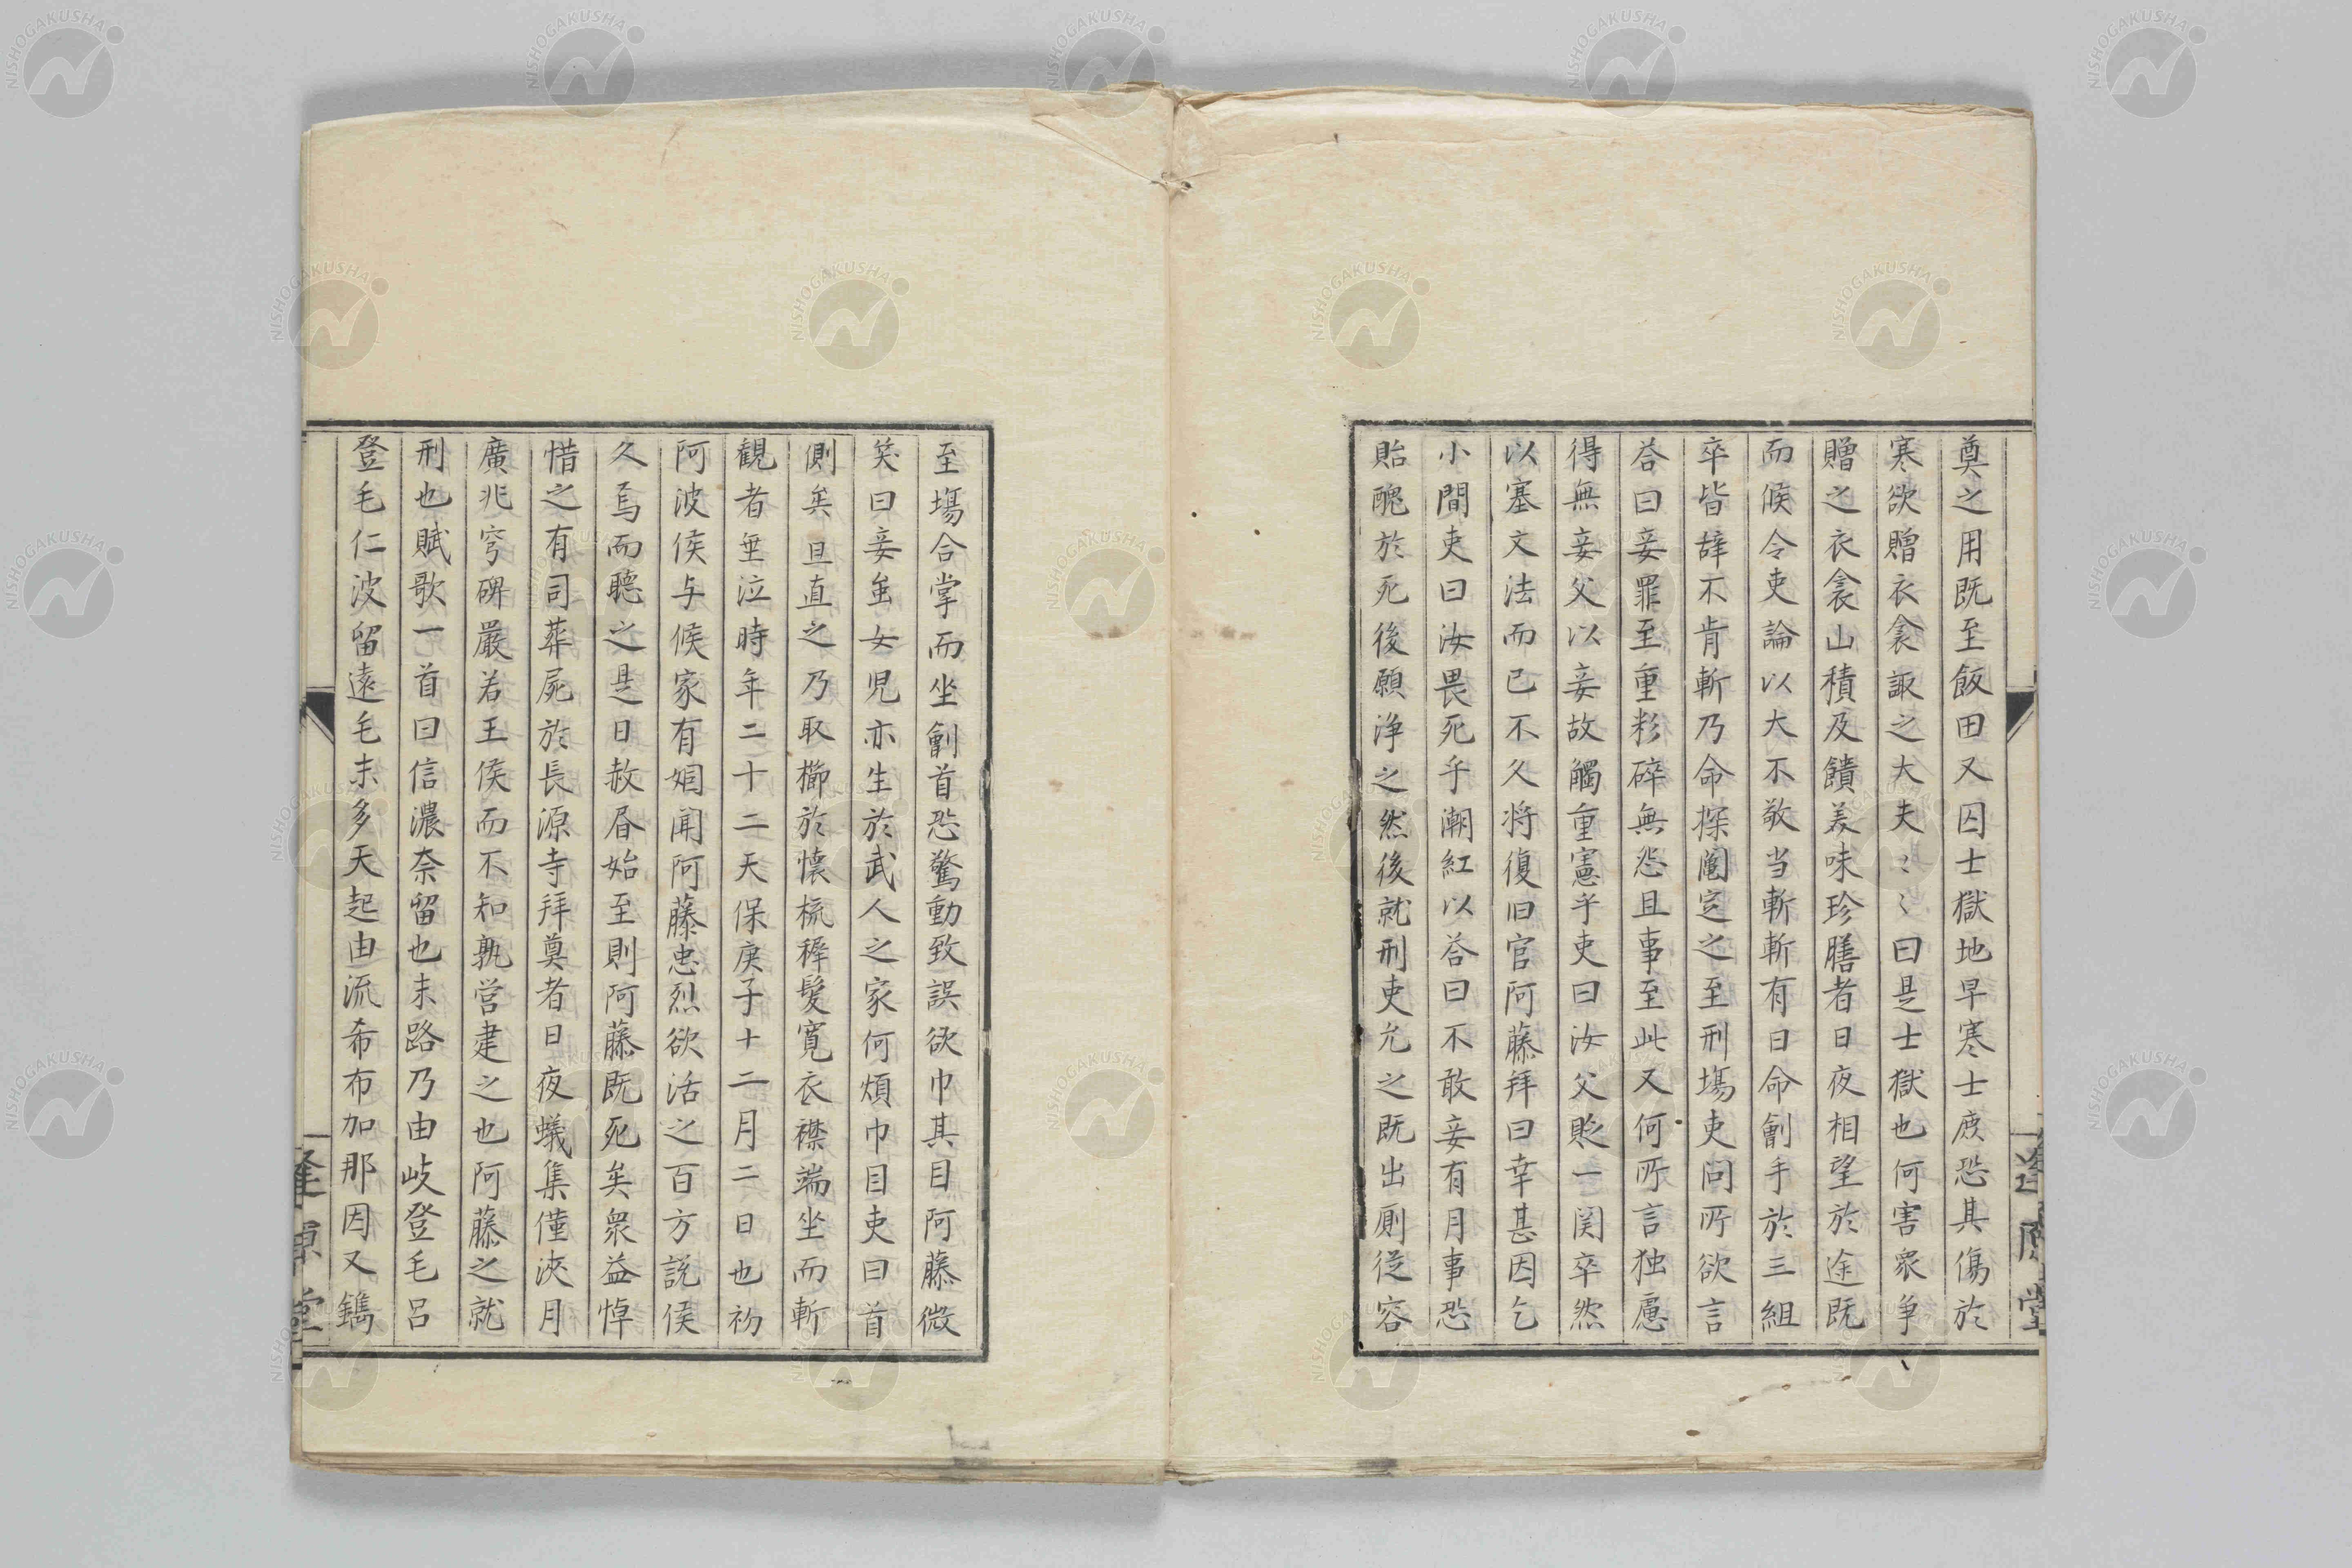 奠之用既至飯田又囚士獄地早寒士庶恐其傷於
寒欲贈衣衾諏之大夫〻〻曰是士獄也何害衆争
贈之衣衾山積及饋羙味珍膳者日夜相望於途既
而候令吏論以大不敬当斬斬有日命劊手於三組
卒皆辞不肯斬乃命探鬮定之至刑塲吏問所欲言
荅曰妾罪至重粉碎無怨且事至此又何所言独慮
得無妾父以妾故觸重憲乎吏曰汝父貶一関卒然
以塞文法而已不久将復旧官阿藤拜曰幸甚因乞
小間吏曰汝畏死乎潮紅以荅曰不敢妾有月事恐
貽醜於死後願浄之然後就刑吏允之既出厠従容
至塲合掌而坐劊首恐驚動致誤欲巾其目阿藤微
笑曰妾虽女児亦生於武人之家何煩巾目吏曰首
側矣且直之乃取櫛於懐梳稺髮寛衣襟端坐而斬
観者垂泣時年二十二天保庚子十二月二日也初
阿波侯与候家有姻聞阿藤忠烈欲活之百方説侯
久焉而聴之是日赦昏始至則阿藤既死矣衆益悼
惜之有司葬屍於長源寺拜奠者日夜蟻集僅浹月
廣兆穹碑嚴若王侯而不知孰営建之也阿藤之就
刑也賦歌一首曰信濃奈留也末路乃由岐登毛呂
登毛仁波留遠毛末多天起由流希布加那因又鐫
逢原堂
逢原堂
NISHOGAKUSHA